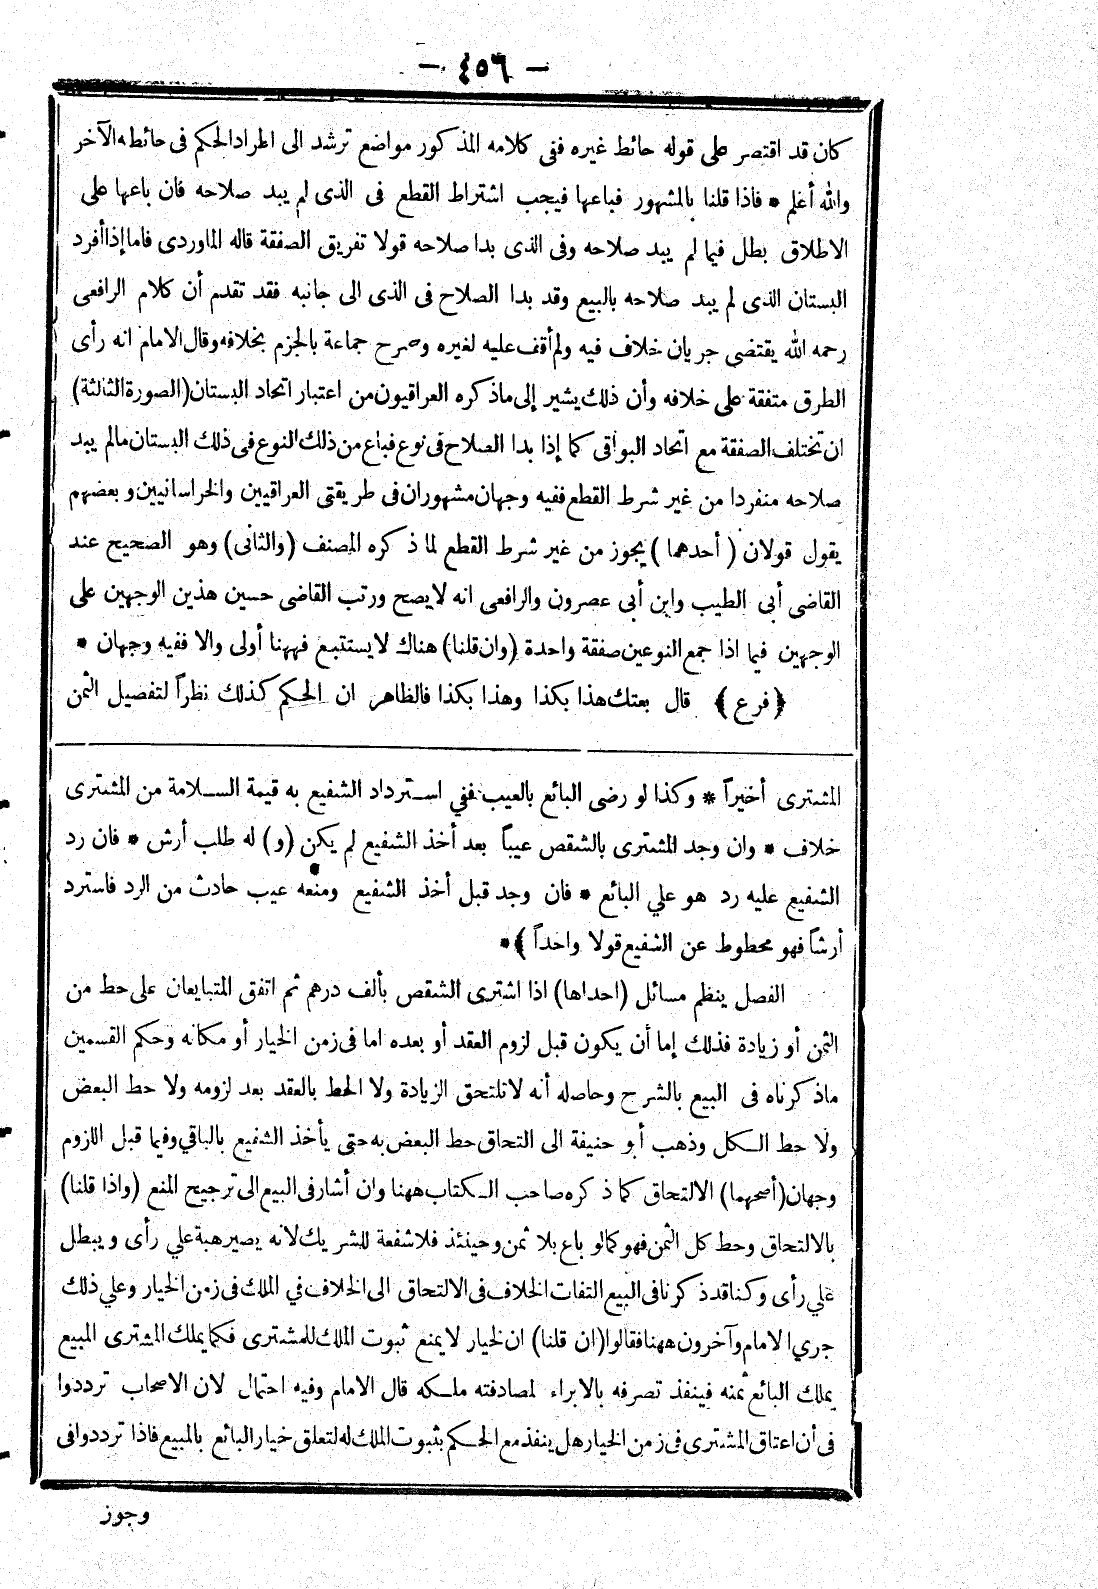 — ٤٥٦ —
كان قد اقتصر على قوله حائط غيره ففى كلامه المذكور مواضع ترشد الى اطراد الحكم فى حائطه الآخر
والله أعلم * فاذا قلنا بالمشهور فباعها فيجب اشتراط القطع فى الذى لم يبد صلاحه فان باعها على
الاطلاق بطل فيما لم يبد صلاحه وفى الذى بدا صلاحه قولا تفريق الصفقة قاله الماوردى فاما إذا أفرد
البستان الذى لم يبد صلاحه بالبيع وقد بدا الصلاح فى الذى الى جانبه فقد تقدم أن كلام الرافعى
رحمه الله يقتضى جريان خلاف فيه ولم أقف عليه لغيره وصرح جماعة بالجزم بخلافه وقال الامام انه رأى
الطرق متفقة على خلافه وأن ذلك يشير إلى ماذكره العراقيون من اعتبار اتحاد البستان (الصورة الثالثة)
ان تختلف الصفقة مع اتحاد البواقى كما إذا بدا الصلاح فى نوع فباع من ذلك النوع فى ذلك البستان مالم يبد
صلاحه منفردا من غير شرط القطع ففيه وجهان مشهوران فى طريقتى العراقيين والخراسانيين وبعضهم
يقول قولان ( أحدهما ) يجوز من غير شرط القطع لما ذكره المصنف (والثانى) وهو الصحيح عند
القاضى أبى الطيب وابن أبى عصرون والرافعى انه لا يصح ورتب القاضى حسين هذين الوجهين على
الوجهين فيما اذا جمع النوعين صفقة واحدة (وان قلنا) هناك لا يستتبع فههنا أولى والا ففيه وجهان *
﴿فرع﴾ قال بعتك هذا بكذا وهذا بكذا فالظاهر ان الحكم كذلك نظراً لتفصيل الثمن
المشترى أخيراً * وكذا لو رضى البائع بالعيب ففي استرداد الشفيع به قيمة السلامة من المشترى
خلاف * وان وجد المشترى بالشقص عيباً بعد أخذ الشفيع لم يكن (و) له طلب أرش * فان رد
الشفيع عليه رد هو علي البائع * فان وجد قبل أخذ الشفيع ومنعه عيب حادث من الرد فاسترد
أرشاً فهو محطوط عن الشفيع قولا واحداً ﴾*
الفصل ينظم مسائل (احداها) اذا اشترى الشقص بألف درهم ثم اتفق المتبايعان على حط من
الثمن أو زيادة فذلك إما أن يكون قبل لزوم العقد أو بعده اما فى زمن الخيار أو مكانه وحكم القسمين
ماذكرناه فى البيع بالشرح وحاصله أنه لا تلتحق الزيادة ولا الحط بالعقد بعد لزومه ولا حط البعض
ولا حط الكل وذهب أبو حنيفة الى التحاق حط البعض به حتى يأخذ الشفيع بالباقي وفيما قبل اللزوم
وجهان (أصحهما) الالتحاق كما ذكره صاحب الكتاب ههنا وان أشار فى البيع الى ترجيح المنع (واذا قلنا)
بالالتحاق وحط كل الثمن فهو كمالو باع بلا ثمن وحينئذ فلا شفعة للشريك لانه يصير هبة علي رأى ويبطل
علي رأى وكنا قد ذكرنا فى البيع التفات الخلاف فى الالتحاق الى الخلاف في الملك فى زمن الخيار وعلي ذلك
جري الامام وآخرون ههنا فقالوا (ان قلنا) ان الخيار لا يمنع ثبوت الملك للمشترى فكما يملك المشترى المبيع
يملك البائع ثمنه فينفذ تصرفه بالابراء لمصادفته ملكه قال الامام وفيه احتمال لان الاصحاب ترددوا
فى أن اعتاق المشترى فى زمن الخيار هل ينفذ مع الحكم بثبوت الملك له لتعلق خيار البائع بالمبيع فاذا ترددوا فى
وجوز